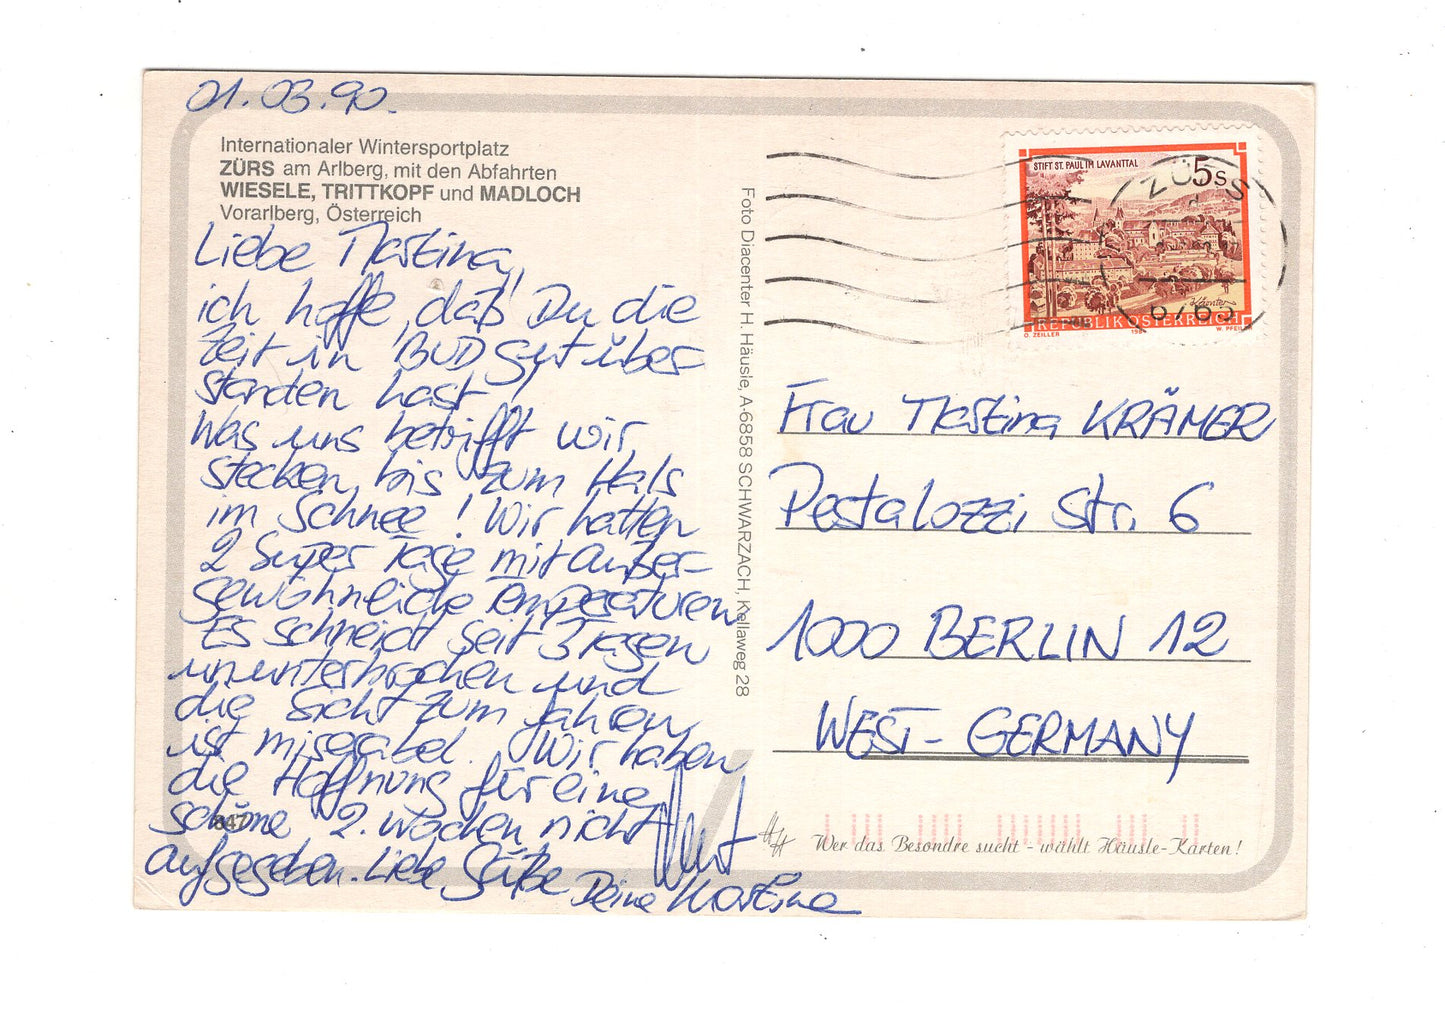 01.03.90.
Internationaler Wintersportplatz
ZÜRS am Arlberg, mit den Abfahrten
WIESELE, TRITTKOPF und MADLOCH
Vorarlberg, Österreich
Liebe Martina,
ich hoffe, daß Du die
Zeit in BUD gut über-
standen hast!
Was uns betrifft wir
stecken bis zum Hals
im Schnee! Wir hatten
2 Super Tage mit außer-
gewöhnliche Temperaturen
Es schneidt seit 3 Tagen
ununterbrochen und
die Sicht zum fahren
ist miserabel. Wir haben
die Hoffnung für eine
schöne 2. Wochen nicht
aufgegeben. Liebe Grüße
Deine Martina
847
Foto Diacenter H. Häusle, A-6858 SCHWARZACH, Kellaweg 28
STIFT ST. PAUL IM LAVANTTAL
5s
REPUBLIK ÖSTERREICH
O. ZEILLER 198 W. PFEILER
ZÜRS
6763
Frau Martina KRÄMER
Pestalozzi Str. 6
1000 BERLIN 12
WEST-GERMANY
HH Wer das Besondre sucht - wählt Häusle-Karten!